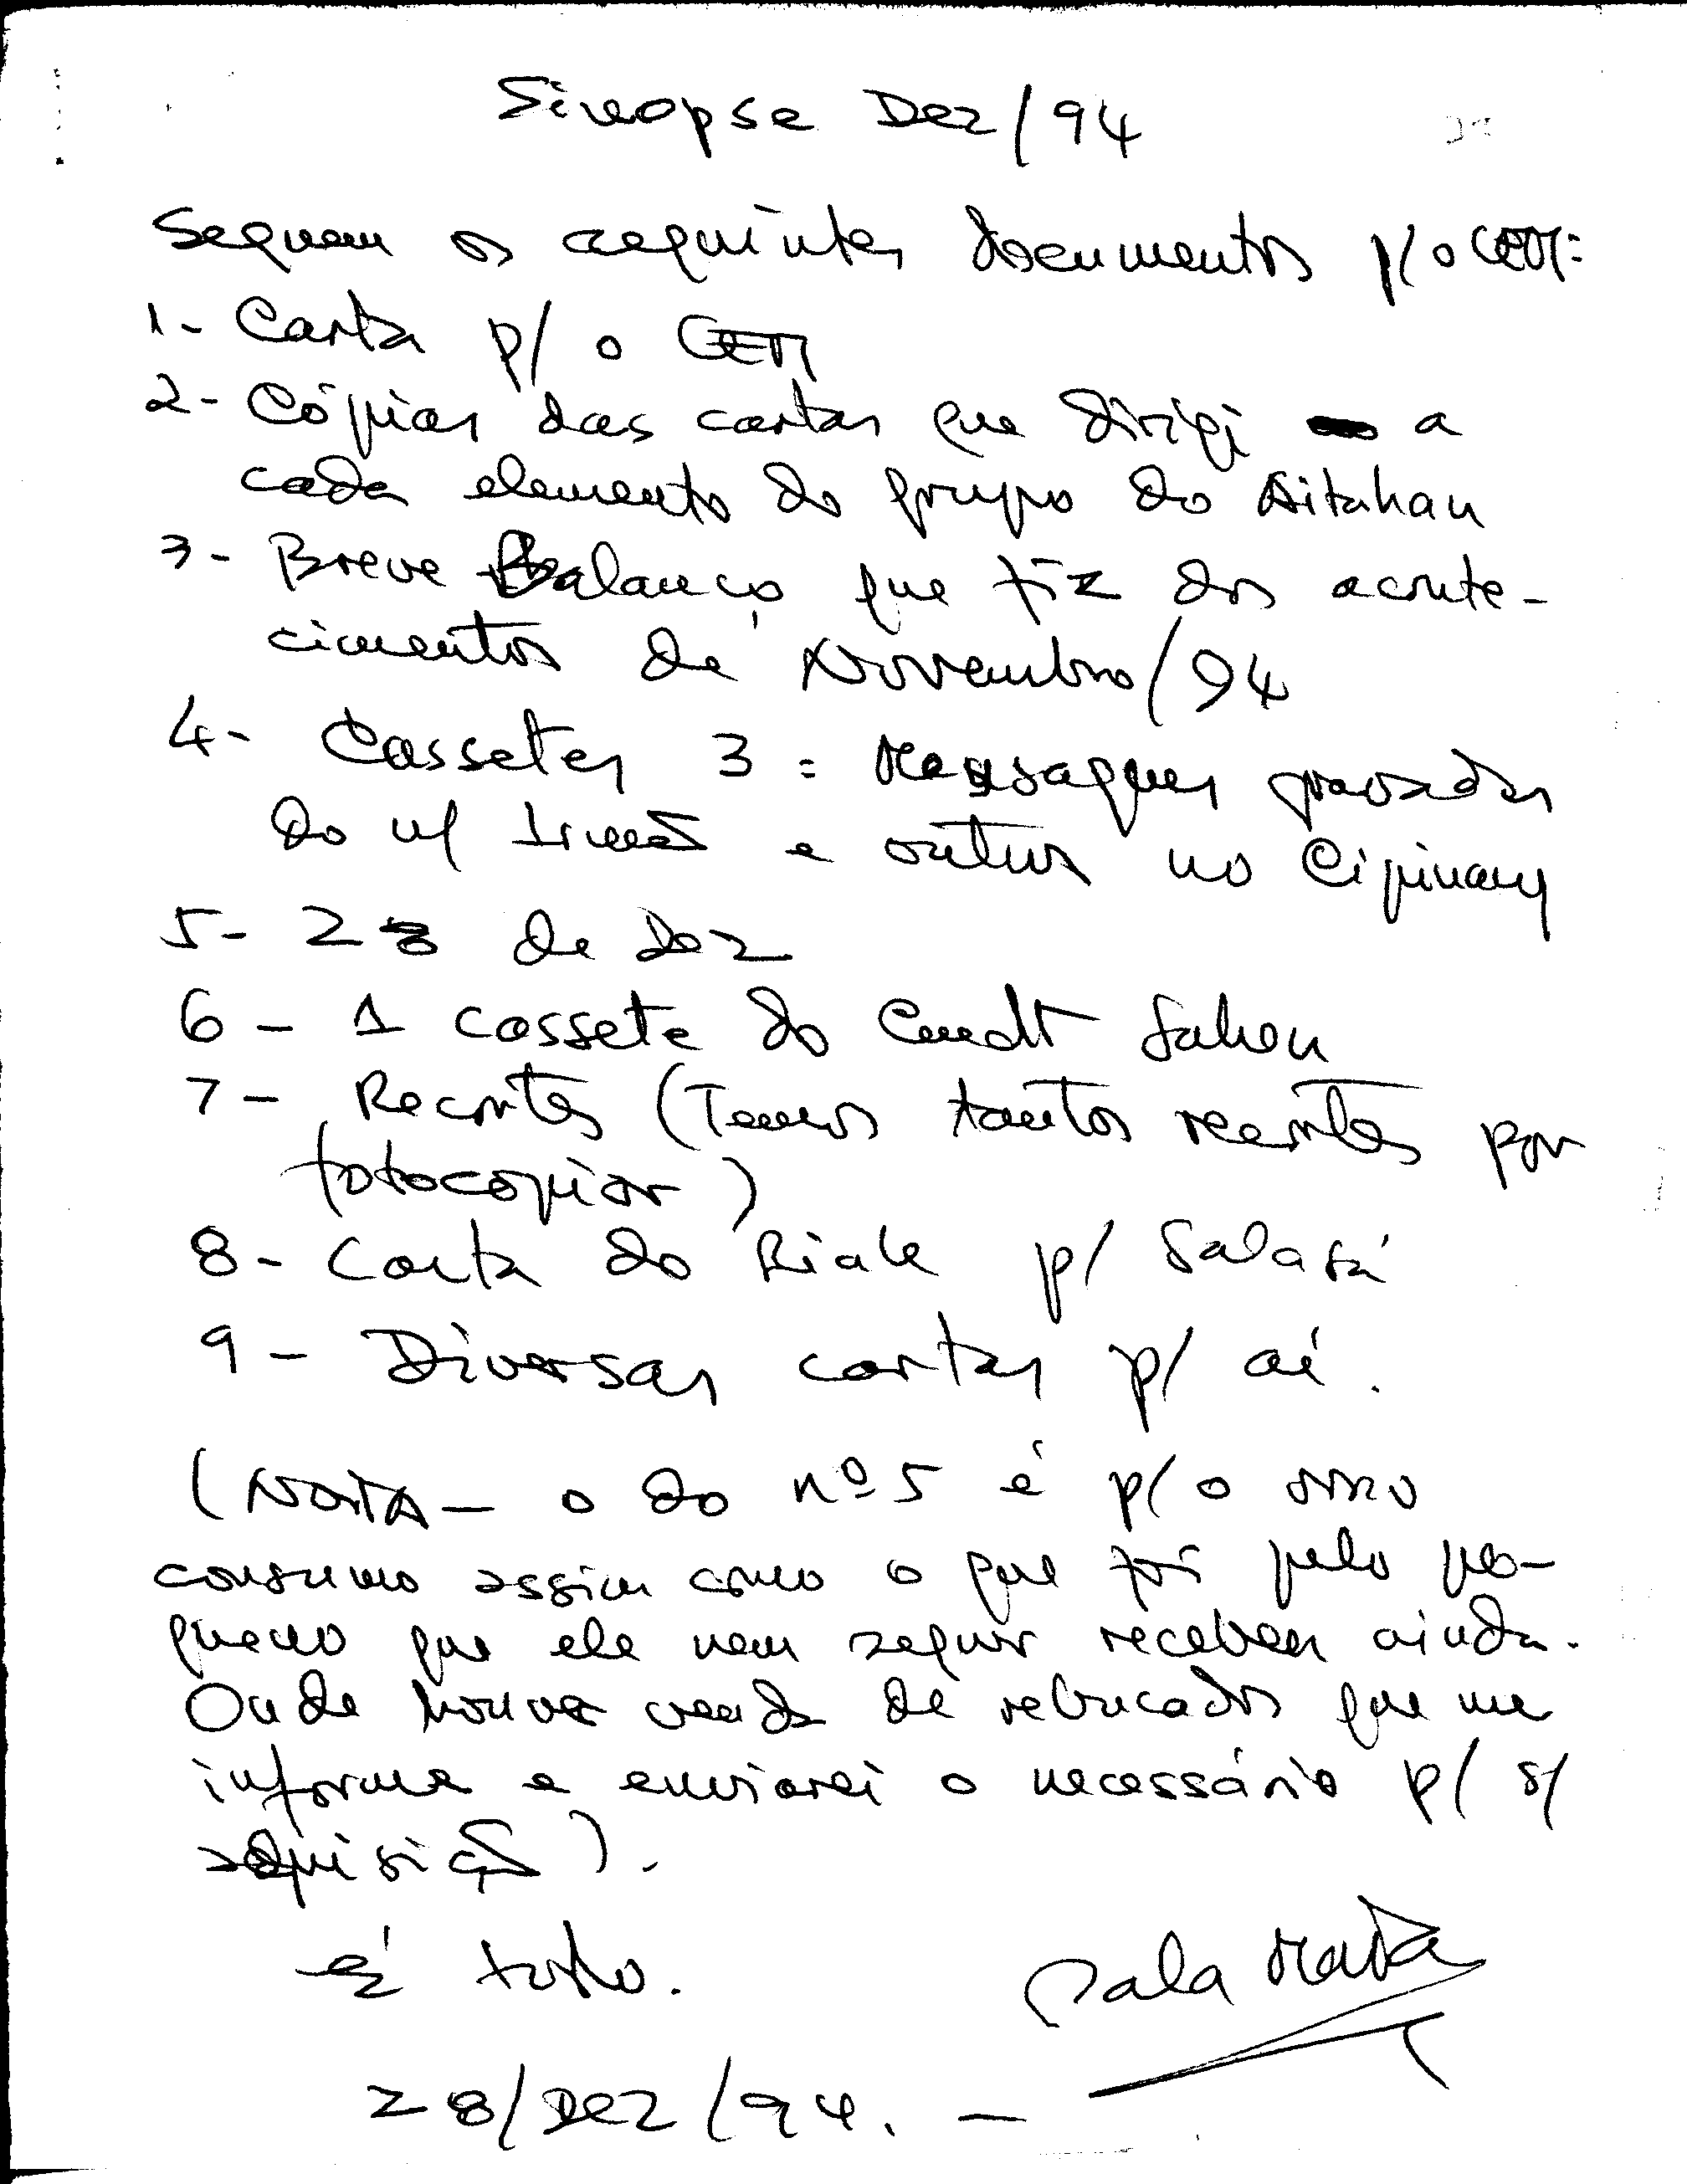 Sinopse Dez/94
Seguem os seguintes documentos p/ o CEM:
1- Carta p/ o CEM
2- Cópias das cartas que dirigi a
cada elemento do grupo do Aitahan
3- Breve Balanço que fiz dos aconte-
cimentos de Novembro/94
4- Cassetes 3 = Mensagens gravadas
do n/ Irmão e outros no Cipinang
5- 28 de dez
6- 1 cassete do Cmdt Sahen
7- Recortes (Temos tantos recortes por
fotocopiar)
8- Carta do Riak p/ Salasá
9- Diversas cartas p/ aí.
(NOTA- o do nº 5 é p/ o
consumo assim como o que foi pelo pe-
queno que ele nem sequer receben ainda.
Onde houver venda de rebuçados que me
informe e enviarei o necessário p/ s/
aquisição).
É tudo.
Sala Mata
28/DEZ/94. -